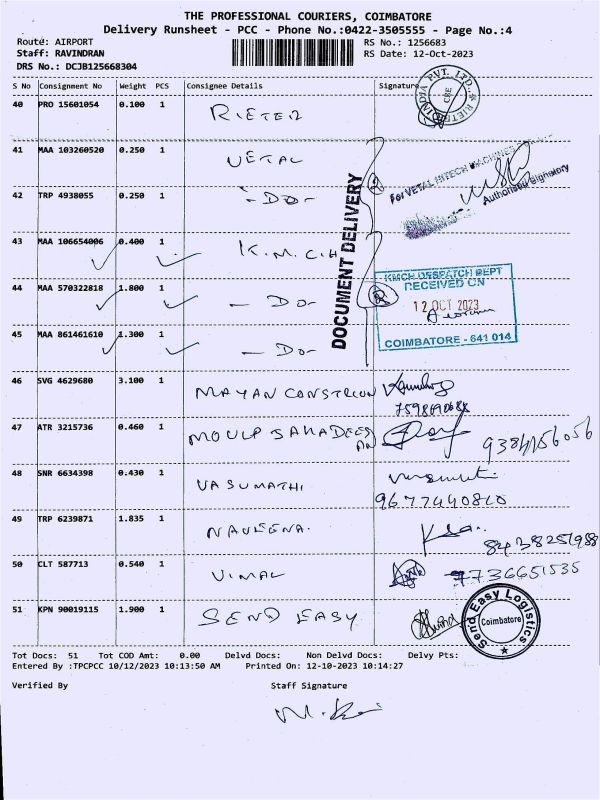 THE PROFESSIONAL COURIERS, COIMBATORE
Delivery Runsheet - PCC - Phone No.:0422-3505555 - Page No.:4
Route: AIRPORT
RS No.: 1256683
Staff: RAVINDRAN
RS Date: 12-Oct-2023
DRS No.: DCJB125668304
S No Consignment No Weight PCS Consignee Details Signature
40 PRO 15601054 0.100 1 RIETER
41 MAA 103260520 0.250 1 VETAL
For VETAL HITECH MACHINES
Authorised Signatory
42 TRP 4938055 0.250 1 - DO -
DOCUMENT DELIVERY
43 MAA 106654006 0.400 1 K.M.C.H
KMCH DESPATCH DEPT
RECEIVED ON
44 MAA 570322818 1.800 1 - DO -
12 OCT 2023
COIMBATORE - 641 014
45 MAA 861461610 1.300 1 - DO -
46 SVG 4629680 3.100 1 MAYAN
47 ATR 3215736 0.460 1
9384156056
48 SNR 6634398 0.430 1 VASUMATHI
9677440810
49 TRP 6239871 1.835 1 NAVEENA.
8438251988
50 CLT 587713 0.540 1 VIMAL 7736651535
51 KPN 90019115 1.900 1 SEND EASY
Send Easy Logistics
Coimbatore
Tot Docs: 51 Tot COD Amt: 0.00 Delvd Docs: Non Delvd Docs: Delvy Pts:
Entered By :TPCPCC 10/12/2023 10:13:50 AM Printed On: 12-10-2023 10:14:27
Verified By Staff Signature